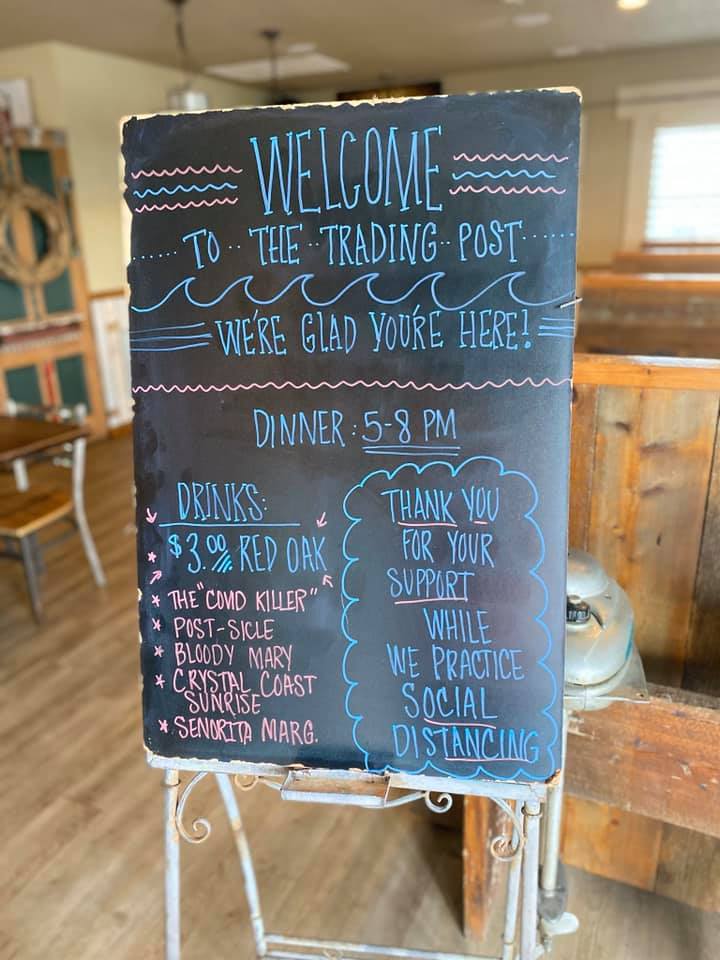 WELCOME
TO THE TRADING POST
WE'RE GLAD YOU'RE HERE!
DINNER: 5-8 PM
DRINKS:
* $3.00 RED OAK
* THE "COVID KILLER"
* POST-SICLE
* BLOODY MARY
* CRYSTAL COAST
SUNRISE
* SENORITA MARG.
THANK YOU
FOR YOUR
SUPPORT
WHILE
WE PRACTICE
SOCIAL
DISTANCING